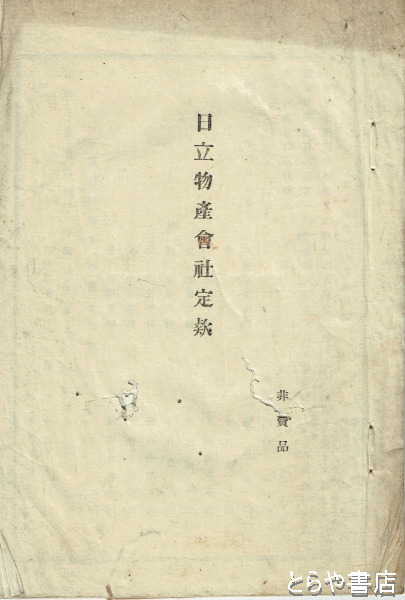 日立物產會社定欵
非賣品
とらや書店